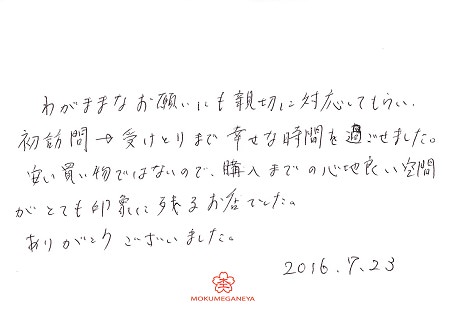 わがままなお願いにも親切に対応してもらい、
初訪問→受けとりまで幸せな時間を過ごせました。
安い買い物ではないので、購入までの心地良い空間
がとても印象に残るお店でした。
ありがとうございました。
2016.7.23
MOKUMEGANEYA